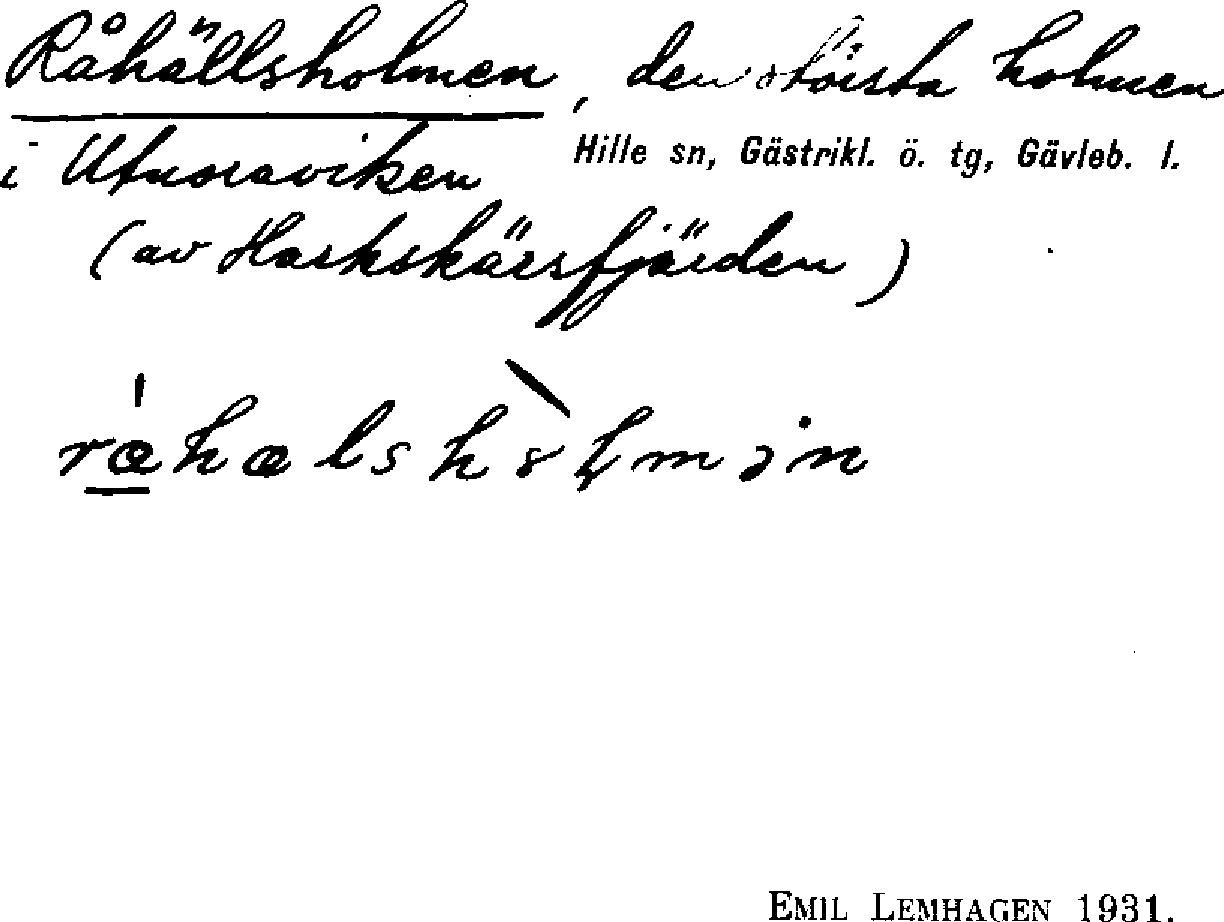 Råhällsholmen, den största holmen
i Utnoraviken
Hille sn, Gästrikl. ö. tg, Gävleb. l.
(av Harkskärsfjärden)
EMIL LEMHAGEN 1931.